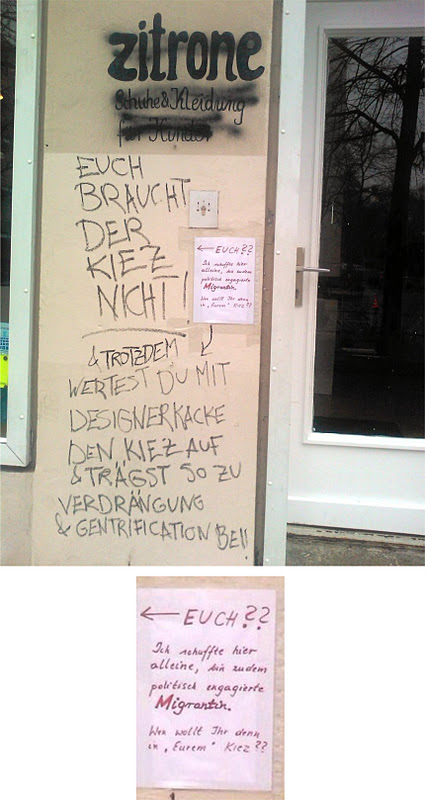 zitrone
Schuhe&Kleidung
für Kinder
EUCH
BRAUCHT
DER
KIEZ
NICHT!
← EUCH??
Ich schuffte hier
alleine, bin zudem
politisch engagierte
Migrantin.
Wen wollt Ihr denn
in „Eurem“ Kiez??
& TROTZDEM
WERTEST DU MIT
DESIGNERKACKE
DEN KIEZ AUF
& TRÄGST SO ZU
VERDRÄNGUNG
& GENTRIFICATION BEI!
← EUCH??
Ich schuffte hier
alleine, bin zudem
politisch engagierte
Migrantin.
Wen wollt Ihr denn
in „Eurem“ Kiez??